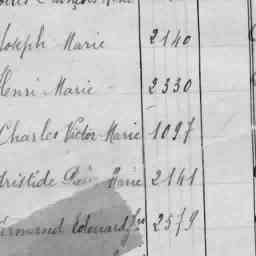 Joseph Marie 2140
Henri Marie 2330
Charles Victor Marie 1097
Aristide Marie 2141
Armand Edouard 2579